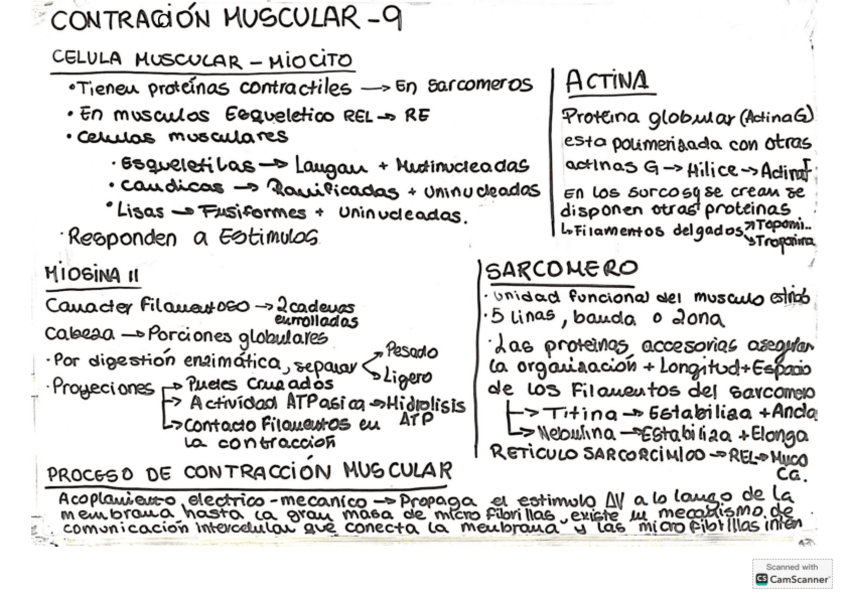 CONTRACIÓN MUSCULAR - 9
CELULA MUSCULAR - MIOCITO
• Tienen proteínas contractiles → En sarcomeros
• En musculos Esqueletico REL → RE
• Celulas musculares
• Esqueletilas → Largan + Multinucleadas
• Candicas → Ramificadas + Uninucleadas
• Lisas → Fusiformes + Uninucleadas.
· Responden a Estimulos
ACTINA
Proteína globular (Actina G)
esta polimerizada con otras
actinas G → Hilice → Actina F
En los surcos q se crean se
disponen otras proteinas
↳ Filamentos delgados → Topomi..
↘ Troponina
MIOSINA II
Caracter Filamentoso → 2 cadenas
enrolladas
Cabeza → Porciones globulares
• Por digestión enzimática, separar Pesado
Ligero
• Proyeciones → Puentes Cruzados
→ Actividad ATPasica → Hidrolisis
ATP
↳ Contacto Filamentos en
la contracción
SARCOMERO
· Unidad funcional del musculo estriab
· 5 linas, banda o zona
· Las proteinas accesorias asegurar
la organización + Longitud + Espacio
de los Filamentos del sarcomero
→ Titina → Estabiliza + Ancla
↳ Nebulina → Estabiliza + Elonga
RETICULO SARCORCIMICO → REL → Muco
Ca.
PROCESO DE CONTRACCIÓN MUSCULAR
Acoplamiento electrico-mecanico → Propaga el estimulo ΔV a lo largo de la
membrana hasta la gran masa de micro fibrillas, existe un mecanismo de
comunicación intercelular que conecta la membrana y las micro fibrillas inten
Scanned with
CS CamScanner